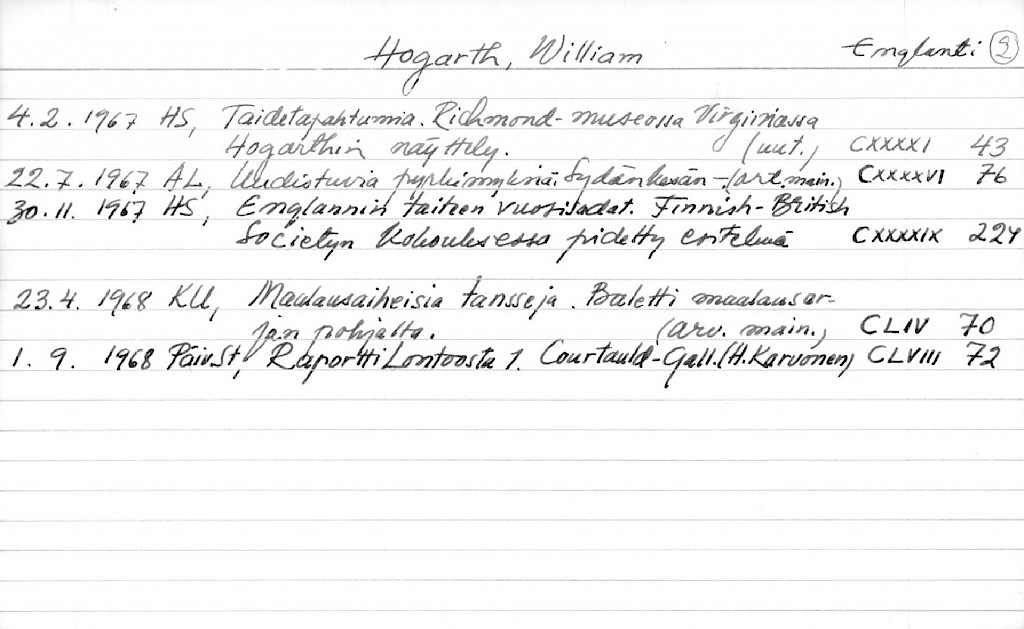 Hogarth, William Englanti 2
4.2.1967 HS, Taidetapahtumia. Richmond-museossa Virginiassa
Hogarthin näyttely. (uut.) CXXXXI 43
22.7.1967 AL, Uudistuvia pyrkimyksiä. Sydänkesän-(art.main.) CXXXXVI 76
30.11.1967 HS, Englannin taiteen vuosisadat. Finnish-British
Societyn kokouksessa pidetty esitelmä CXXXXIX 224
23.4.1968 KU, Maalausaiheisia tansseja. Baletti maalausar-
jan pohjalta. (arv. main.) CLIV 70
1.9.1968 PäivSt, Raportti Lontoosta 1. Courtauld-Gall.(H.Karvonen) CLVIII 72